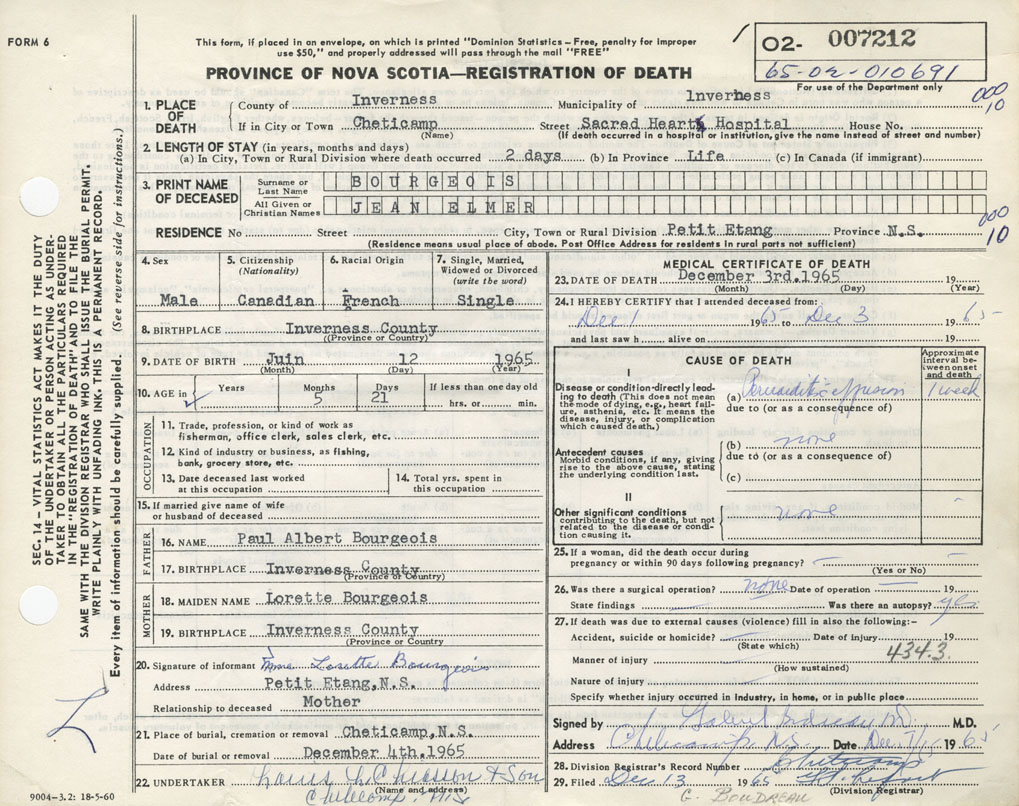 FORM 6
This form, if placed in an envelope, on which is printed "Dominion Statistics – Free, penalty for improper
use $50," and properly addressed will pass through the mail "FREE"
PROVINCE OF NOVA SCOTIA—REGISTRATION OF DEATH
02- 007212
65-02-010691
For use of the Department only
000
10
1. PLACE OF DEATH
County of Inverness Municipality of Inverness
If in City or Town Cheticamp Street Sacred Heart Hospital House No.
(Name) (If death occurred in a hospital or institution, give the name instead of street and number)
2. LENGTH OF STAY (in years, months and days)
(a) In City, Town or Rural Division where death occurred 2 days (b) In Province Life (c) In Canada (if immigrant)
3. PRINT NAME OF DECEASED
Surname or Last Name BOURGEOIS
All Given or Christian Names JEAN ELMER
000
10
RESIDENCE No Street City, Town or Rural Division Petit Etang Province N.S.
(Residence means usual place of abode. Post Office Address for residents in rural parts not sufficient)
4. Sex
Male
5. Citizenship
(Nationality)
Canadian
6. Racial Origin
French
7. Single, Married,
Widowed or Divorced
(write the word)
Single
8. BIRTHPLACE Inverness County
(Province or Country)
9. DATE OF BIRTH Juin 12 1965
(Month) (Day) (Year)
10. AGE in
Years Months Days If less than one day old
5 21 hrs. or min.
OCCUPATION
11. Trade, profession, or kind of work as
fisherman, office clerk, sales clerk, etc.
12. Kind of industry or business, as fishing,
bank, grocery store, etc.
13. Date deceased last worked
at this occupation
14. Total yrs. spent in
this occupation
15. If married give name of wife
or husband of deceased
FATHER
16. NAME Paul Albert Bourgeois
17. BIRTHPLACE Inverness County
(Province or Country)
MOTHER
18. MAIDEN NAME Lorette Bourgeois
19. BIRTHPLACE Inverness County
(Province or Country)
20. Signature of informant Mme Lorette Bourgeois
Address Petit Etang, N.S.
Relationship to deceased Mother
21. Place of burial, cremation or removal Cheticamp, N.S.
Date of burial or removal December 4th. 1965
22. UNDERTAKER & Son
(Name and address)
Cheticamp, N.S.
MEDICAL CERTIFICATE OF DEATH
23. DATE OF DEATH December 3rd. 1965 19
(Month) (Day) (Year)
24. I HEREBY CERTIFY that I attended deceased from:
Dec 1 1965 to Dec 3 1965
and last saw h alive on 19
CAUSE OF DEATH
Approximate
interval be-
tween onset
and death
I
Disease or condition directly lead-
ing to death (This does not mean
the mode of dying, e.g., heart fail-
ure, asthenia, etc. It means the
disease, injury, or complication
which caused death.)
(a) Pericarditis effusion 1 week
due to (or as a consequence of)
Antecedent causes
Morbid conditions, if any, giving
rise to the above cause, stating
the underlying condition last.
(b) none
due to (or as a consequence of)
(c)
II
Other significant conditions
contributing to the death, but not
related to the disease or condi-
tion causing it.
none
25. If a woman, did the death occur during
pregnancy or within 90 days following pregnancy?
(Yes or No)
26. Was there a surgical operation? none Date of operation 19
State findings Was there an autopsy? yes
27. If death was due to external causes (violence) fill in also the following:–
Accident, suicide or homicide? Date of injury 19
(State which)
434.3.
Manner of injury
(How sustained)
Nature of injury
Specify whether injury occurred in Industry, in home, or in public place
Signed by M.D.
Address Cheticamp N.S. Date Dec 1965
28. Division Registrar's Record Number Cheticamp
29. Filed Dec 13 1965
(Division Registrar)
G. BOUDREAU
SEC. 14 – VITAL STATISTICS ACT MAKES IT THE DUTY
OF THE UNDERTAKER OR PERSON ACTING AS UNDER-
TAKER TO OBTAIN ALL THE PARTICULARS REQUIRED
IN THE "REGISTRATION OF DEATH" AND TO FILE THE
SAME WITH THE DIVISION REGISTRAR WHO SHALL ISSUE THE BURIAL PERMIT.
WRITE PLAINLY WITH UNFADING INK - THIS IS A PERMANENT RECORD.
Every item of information should be carefully supplied. (See reverse side for instructions.)
9004-3.2: 18-5-60